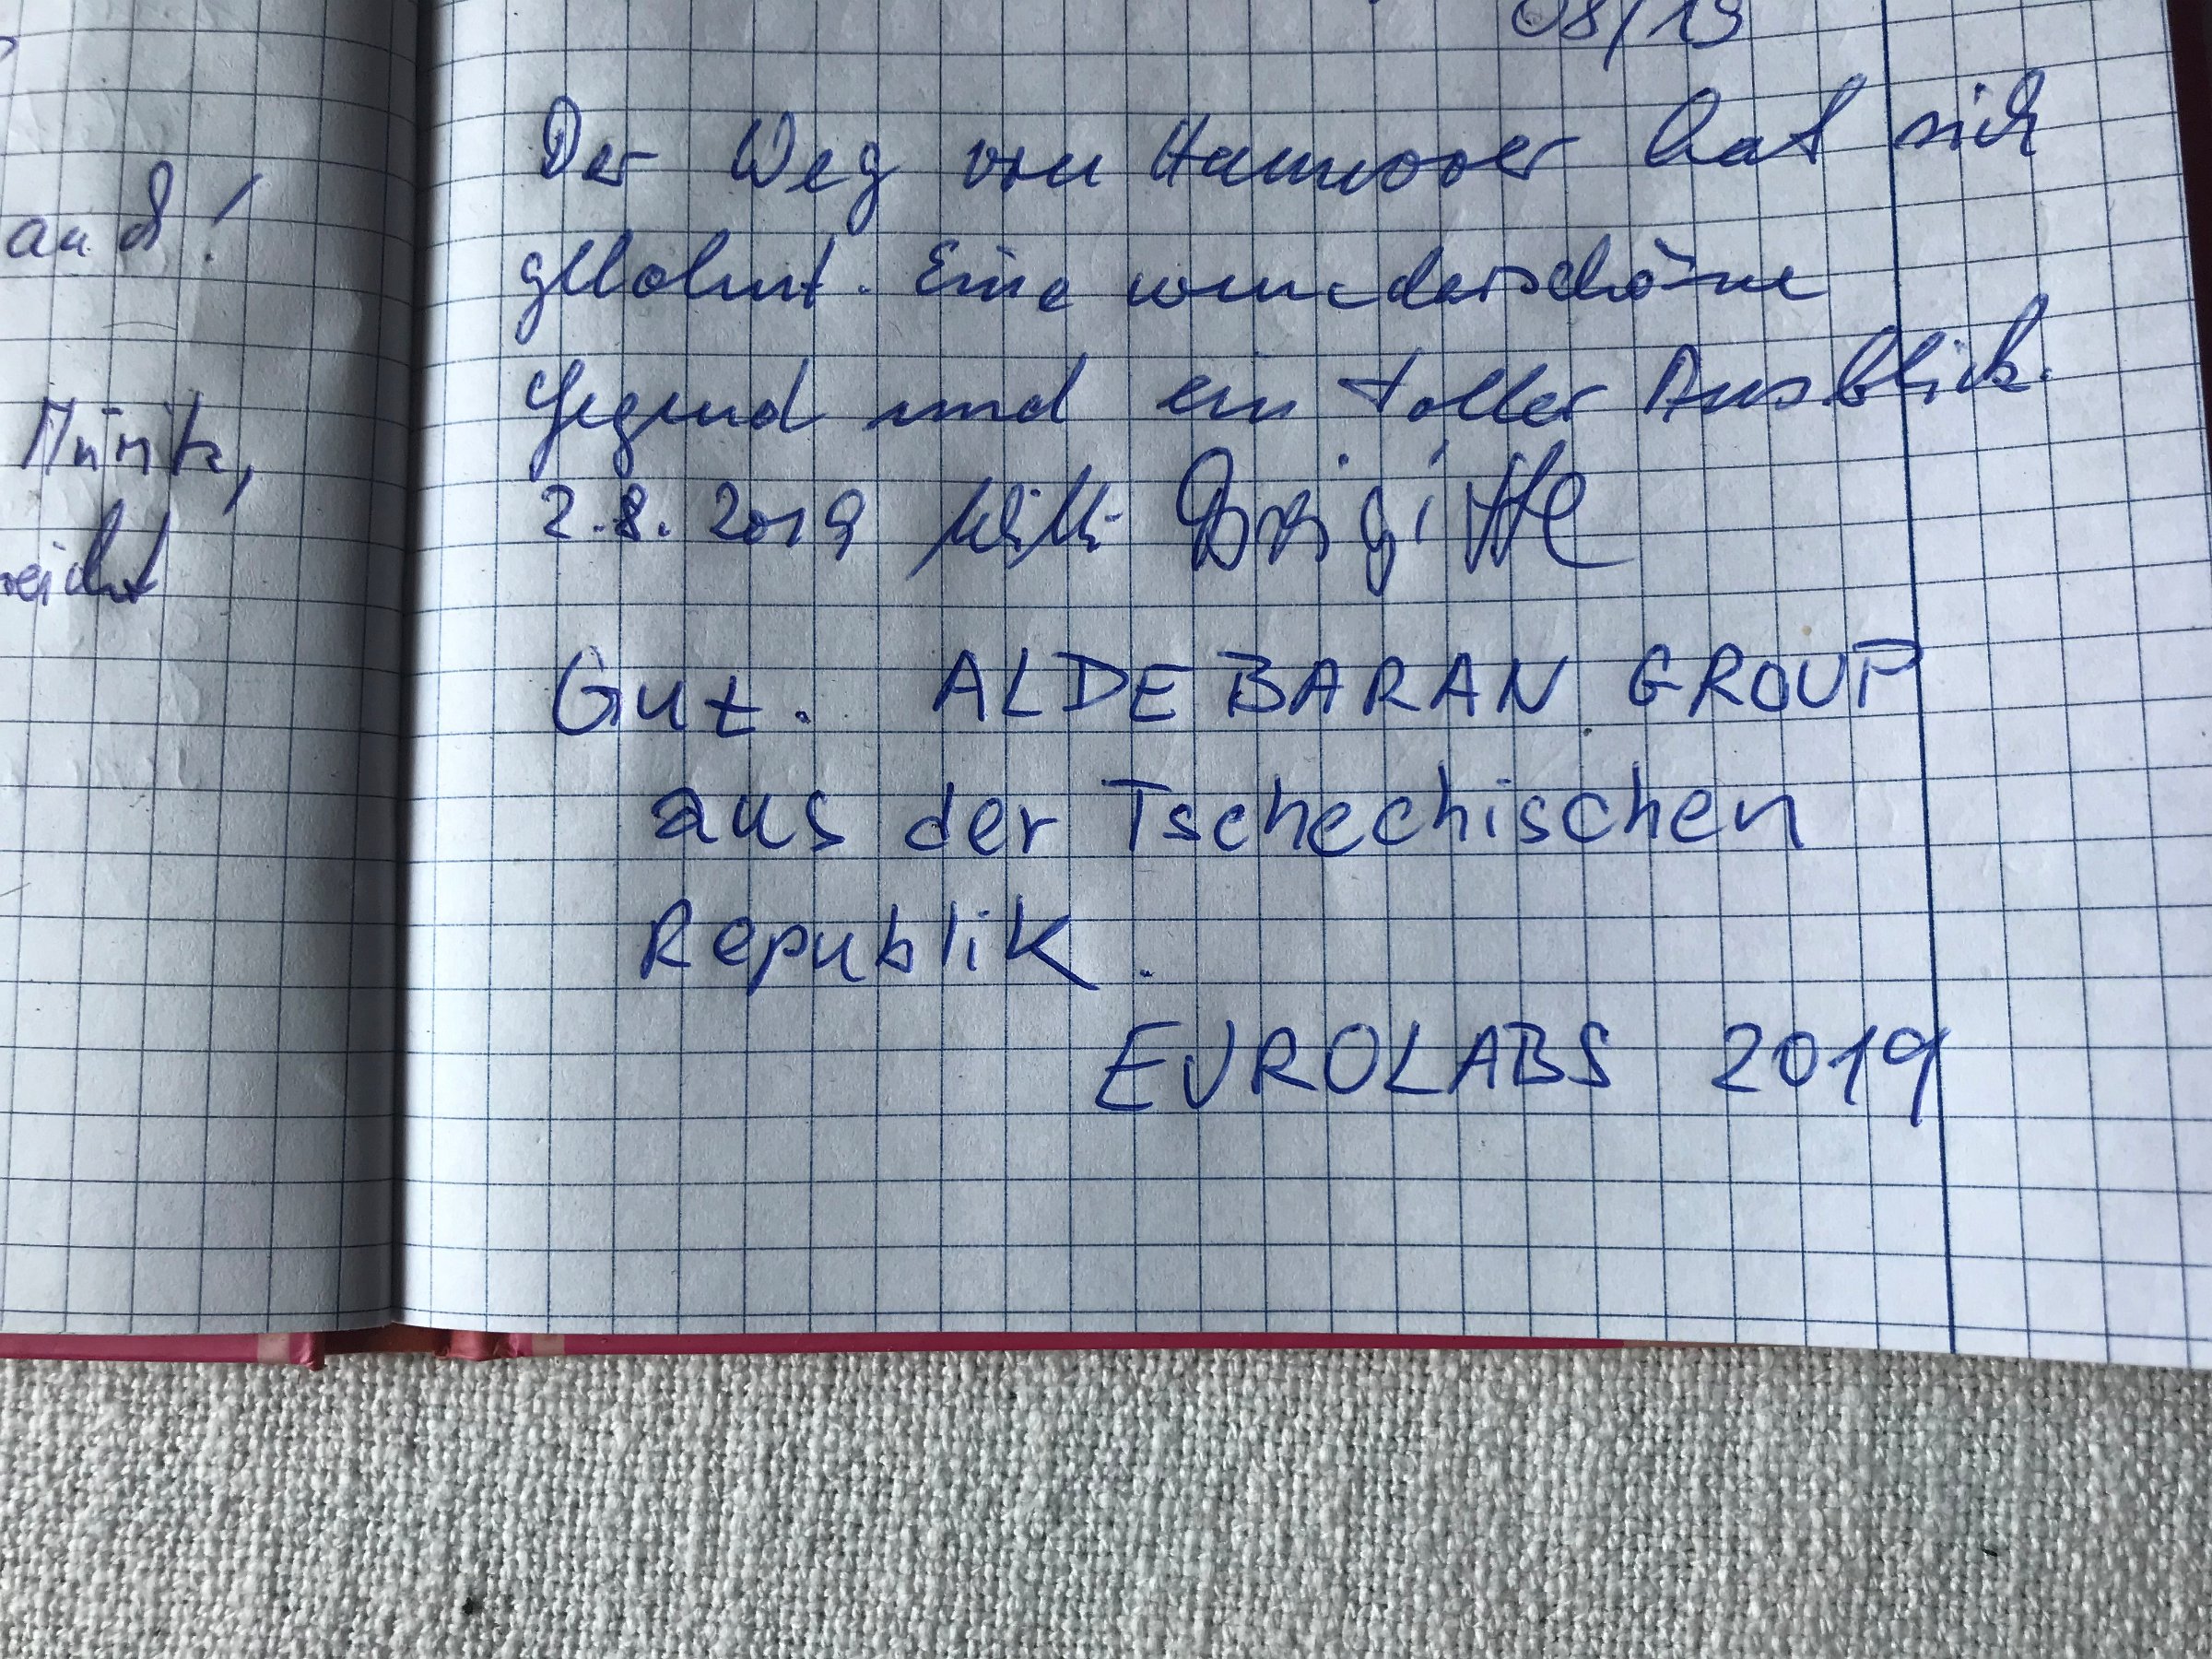 auch!
Müritz,
08/19
Der Weg von Hannover hat sich
gelohnt. Eine wunderschöne
Gegend und ein toller Ausblick.
2.8.2019 Brigitte
Gut. ALDEBARAN GROUP
aus der Tschechischen
Republik.
EUROLABS 2019